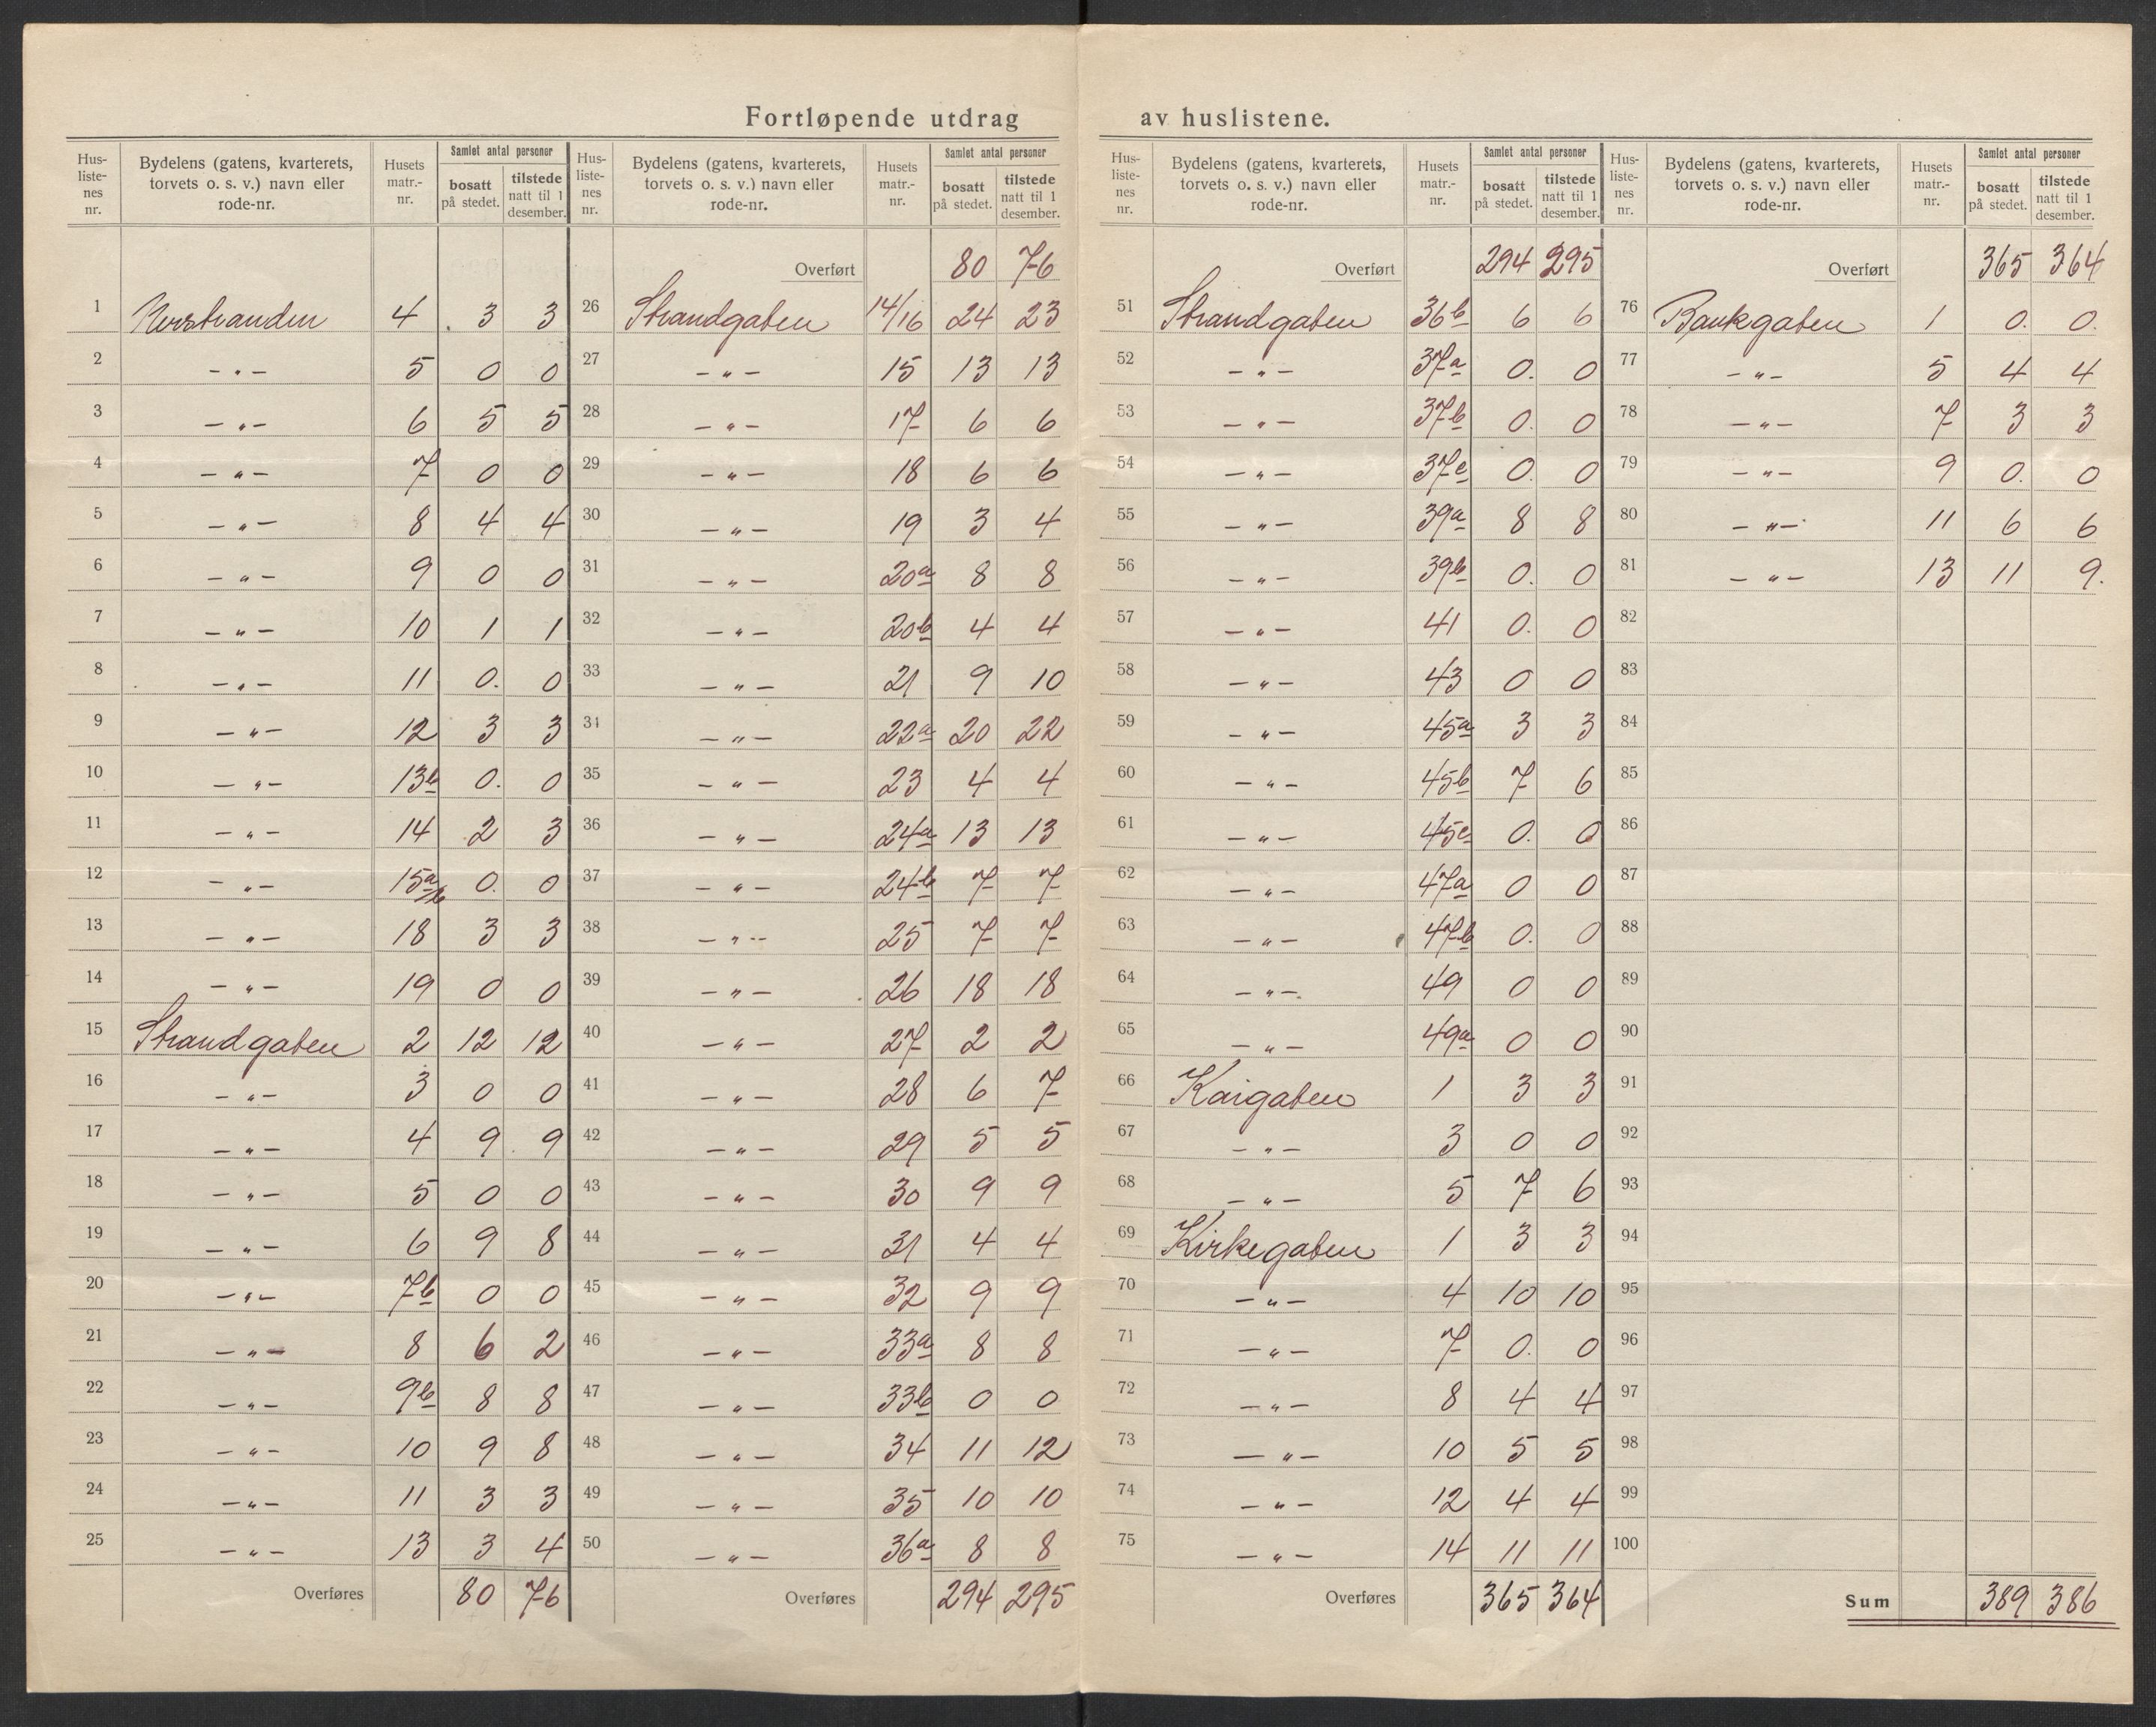 Fortløpende utdrag av huslistene.
Hus-liste-nes nr. | Bydelens (gatens, kvarterets, torvets o. s. v.) navn eller rode-nr. | Husets matr.-nr. | Samlet antal personer bosatt på stedet. | tilstede natt til 1 desember.
1 4 3 3
2 -"- 5 0 0
3 -"- 6 5 5
4 -"- 7 0 0
5 -"- 8 4 4
6 -"- 9 0 0
7 -"- 10 1 1
8 -"- 11 0. 0
9 -"- 12 3 3
10 -"- 13b 0. 0
11 -"- 14 2 3
12 -"- 15a/b 0. 0
13 -"- 18 3 3
14 -"- 19 0 0
15 Strandgaten 2 12 12
16 -"- 3 0 0
17 -"- 4 9 9
18 -"- 5 0 0
19 -"- 6 9 8
20 -"- 7b 0 0
21 -"- 8 6 2
22 -"- 9b 8 8
23 -"- 10 9 8
24 -"- 11 3 3
25 -"- 13 3 4
Overføres 80 76
Hus-liste-nes nr. | Bydelens (gatens, kvarterets, torvets o. s. v.) navn eller rode-nr. | Husets matr.-nr. | Samlet antal personer bosatt på stedet. | tilstede natt til 1 desember.
Overført 80 76
26 Strandgaten 14/16 24 23
27 -"- 15 13 13
28 -"- 17 6 6
29 -"- 18 6 6
30 -"- 19 3 4
31 -"- 20a 8 8
32 -"- 20b 4 4
33 -"- 21 9 10
34 -"- 22a 20 22
35 -"- 23 4 4
36 -"- 24a 13 13
37 -"- 24b 7 7
38 -"- 25 7 7
39 -"- 26 18 18
40 -"- 27 2 2
41 -"- 28 6 7
42 -"- 29 5 5
43 -"- 30 9 9
44 -"- 31 4 4
45 -"- 32 9 9
46 -"- 33a 8 8
47 -"- 33b 0 0
48 -"- 34 11 12
49 -"- 35 10 10
50 -"- 36a 8 8
Overføres 294 295
Hus-liste-nes nr. | Bydelens (gatens, kvarterets, torvets o. s. v.) navn eller rode-nr. | Husets matr.-nr. | Samlet antal personer bosatt på stedet. | tilstede natt til 1 desember.
Overført 294 295
51 Strandgaten 36b 6 6
52 -"- 37a 0. 0
53 -"- 37b 0. 0
54 -"- 37c 0. 0
55 -"- 39a 8 8
56 -"- 39b 0. 0
57 -"- 41 0. 0
58 -"- 43 0 0
59 -"- 45a 3 3
60 -"- 45b 7 6
61 -"- 45c 0. 0
62 -"- 47a 0 0
63 -"- 47b 0. 0
64 -"- 49 0 0
65 -"- 49a 0 0
66 Kaigaten 1 3 3
67 -"- 3 0 0
68 -"- 5 7 6
69 Kirkegaten 1 3 3
70 -"- 4 10 10
71 -"- 7 0. 0
72 -"- 8 4 4
73 -"- 10 5 5
74 -"- 12 4 4
75 -"- 14 11 11
Overføres 365 364
Hus-liste-nes nr. | Bydelens (gatens, kvarterets, torvets o. s. v.) navn eller rode-nr. | Husets matr.-nr. | Samlet antal personer bosatt på stedet. | tilstede natt til 1 desember.
Overført 365 364
76 Bankgaten 1 0. 0.
77 -"- 5 4 4
78 -"- 7 3 3
79 -"- 9 0. 0
80 -"- 11 6 6
81 -"- 13 11 9.
82
83
84
85
86
87
88
89
90
91
92
93
94
95
96
97
98
99
100
Sum 389 386